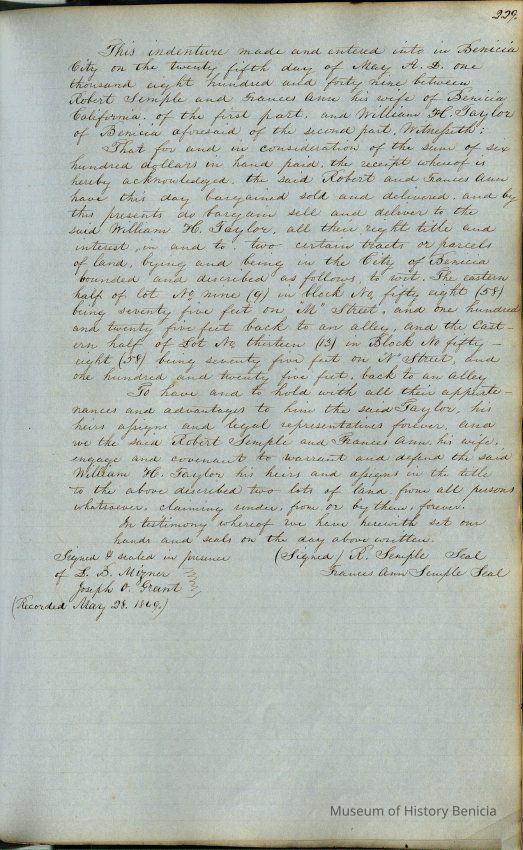 229.
This indenture made and entered into in Benicia
City on the twenty fifth day of May A. D. one
thousand eight hundred and forty nine between
Robert Semple and Frances Ann his wife of Benicia
California, of the first part, and William H. Taylor
of Benicia aforesaid of the second part, Witnesseth;
That for and in consideration of the sum of six
hundred dollars in hand paid, the receipt whereof is
hereby acknowledged, the said Robert and Frances Ann
have this day bargained sold and delivered, and by
this presents do bargain sell and deliver to the
said William H. Taylor, all their right title and
interest, in and to, two certain tracts or parcels
of land, lying and being in the City of Benicia
bounded and discribed as follows, to wit. The eastern
half of lot No nine (9) in block No, fifty eight (58)
being seventy five feet on "M" Street, and one hundred
and twenty five feet back to an alley, and the East-
ern half of Lot No thirteen (13) in Block No fifty-
eight (58) being seventy five feet on N Street, and
one hundred and twenty five feet, back to an alley
To have and to hold with all their apperte-
nances and advantages to him the said Taylor, his
heirs assigns and legal representatives forever, and
we the said Robert Semple and Frances Ann, his wife,
engage and covenant to warrant and defend the said
William H. Taylor his heirs and assigns in the title
to the above described two lots of land, from all persons
whatsoever, claiming under, from or by them, forever.
In testimony whereof we have herewith set our
hands and seals on the day above written.
Signed & sealed in presence (Signed) R. Semple Seal
of L. B. Mizner Frances Ann Semple Seal
Joseph O. Grant
(Recorded May 28. 1849.)
Museum of History Benicia